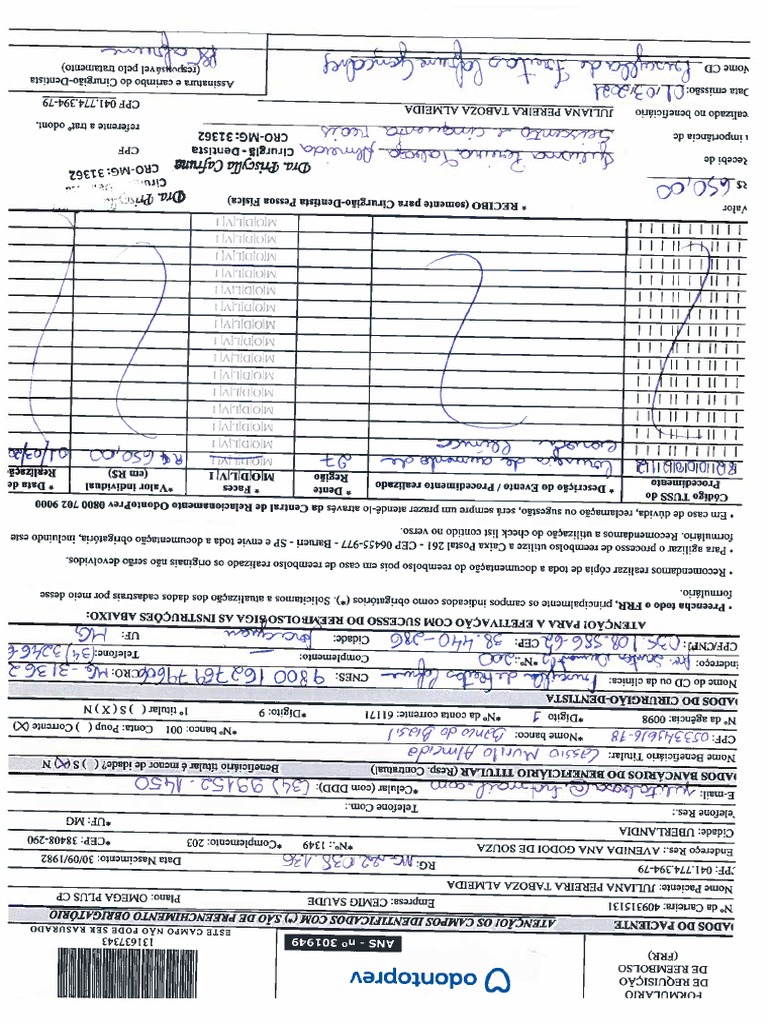 FORMULÁRIO
DE REQUISIÇÃO
DE REEMBOLSO
(FRR)
odontoprev
ANS - nº 301949
131637343
ESTE CAMPO NÃO PODE SER RASURADO
DADOS DO PACIENTE
ATENÇÃO! OS CAMPOS IDENTIFICADOS COM (*) SÃO DE PREENCHIMENTO OBRIGATÓRIO
Nº da Carteira: 409319131 Empresa: CEMIG SAUDE Plano: OMEGA PLUS CP
Nome Paciente: JULIANA PEREIRA TABOZA ALMEIDA
CPF: 041.774.394-79 RG: MG-22.038.136 Data Nascimento: 30/09/1982
Endereço Res.: AVENIDA ANA GODOI DE SOUZA *Nº.: 1349 *Complemento: 203 *CEP: 38408-290
Cidade: UBERLANDIA *UF: MG
Telefone Res.: Telefone Com.:
E-mail: @hotmail.com *Celular (com DDD): (34) 99152-1450
DADOS BANCÁRIOS DO BENEFICIÁRIO TITULAR (Resp. Contratual) Beneficiário titular é menor de idade? ( ) S (X) N
Nome Beneficiário Titular: Cassio Murilo Almeida
CPF: 053345616-18 *Nome banco: Banco do Brasil *Nº banco: 001 Conta: Poup ( ) Corrente (X)
Nº da agência: 0098 *Dígito 1 *Nº da conta corrente: 61171 *Dígito: 9 1º titular ( ) S ( X ) N
DADOS DO CIRURGIÃO-DENTISTA
Nome do CD ou da clínica: Priscylla de Freitas Cafrune CNES: 9800162769796 *CRO: MG-31362
Endereço: Av. Santos Dumont *Nº.: 200 Complemento: Telefone: (34) 3246-6
CPF/CNPJ: 035.108.586-62 CEP: 38.440-286 Cidade: Araguari UF: MG
ATENÇÃO! PARA A EFETIVAÇÃO COM SUCESSO DO REEMBOLSO SIGA AS INSTRUÇÕES ABAIXO:
• Preencha todo o FRR, principalmente os campos indicados como obrigatórios (*). Solicitamos a atualização dos dados cadastrais por meio desse
formulário.
• Recomendamos realizar cópia de toda a documentação do reembolso pois em caso de reembolso realizado os originais não serão devolvidos.
• Para agilizar o processo de reembolso utilize a Caixa Postal 261 - CEP 06455-977 - Barueri - SP e envie toda a documentação obrigatória, incluindo este
formulário. Recomendamos a utilização do check list contido no verso.
• Em caso de dúvida, reclamação ou sugestão, será sempre um prazer atendê-lo através da Central de Relacionamento OdontoPrev 0800 702 9000
Código TUSS do Procedimento * Descrição do Evento / Procedimento realizado * Dente Região * Faces M|O|D|L|V|I * Valor individual (em R$) * Data de Realização
Cirurgia de aumento de 27 R$ 650,00 01/03/20
coroa clínica
* RECIBO (somente para Cirurgião-Dentista Pessoa Física)
Valor
R$ 650,00
Dra. Priscylla
CRO-MG: 31362
Recebi de Juliana Pereira Taboza Almeida CPF
a importância de Seiscentos e cinquenta reais referente a tratº odont.
Dra. Priscylla Cafrune
Cirurgiã - Dentista
CRO-MG: 31362
realizado no beneficiário JULIANA PEREIRA TABOZA ALMEIDA CPF 041.774.394-79
Data emissão: 01/03/2021
Nome CD Priscylla de Freitas Cafrune Gonçalves
Assinatura e carimbo do Cirurgião-Dentista
(responsável pelo tratamento)